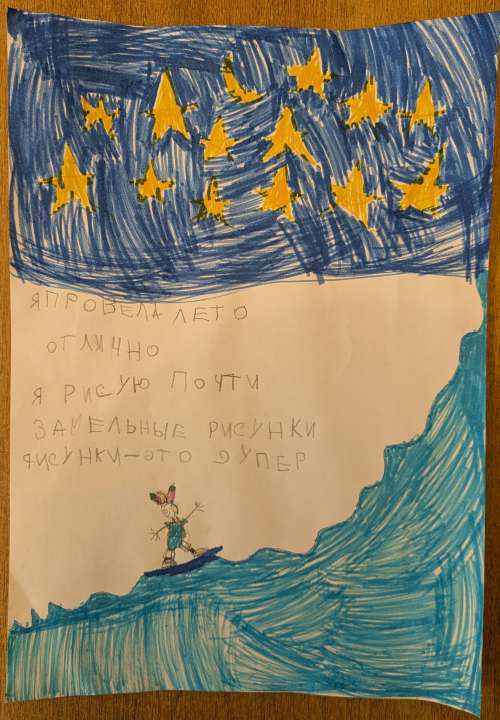 Я ПРОВЕЛА ЛЕТО
ОТЛИЧНО
Я РИСУЮ ПОЧТИ
ЗАМЕЛЬНЫЕ РИСУНКИ
РИСУНКИ-ЭТО ЭУПЕР